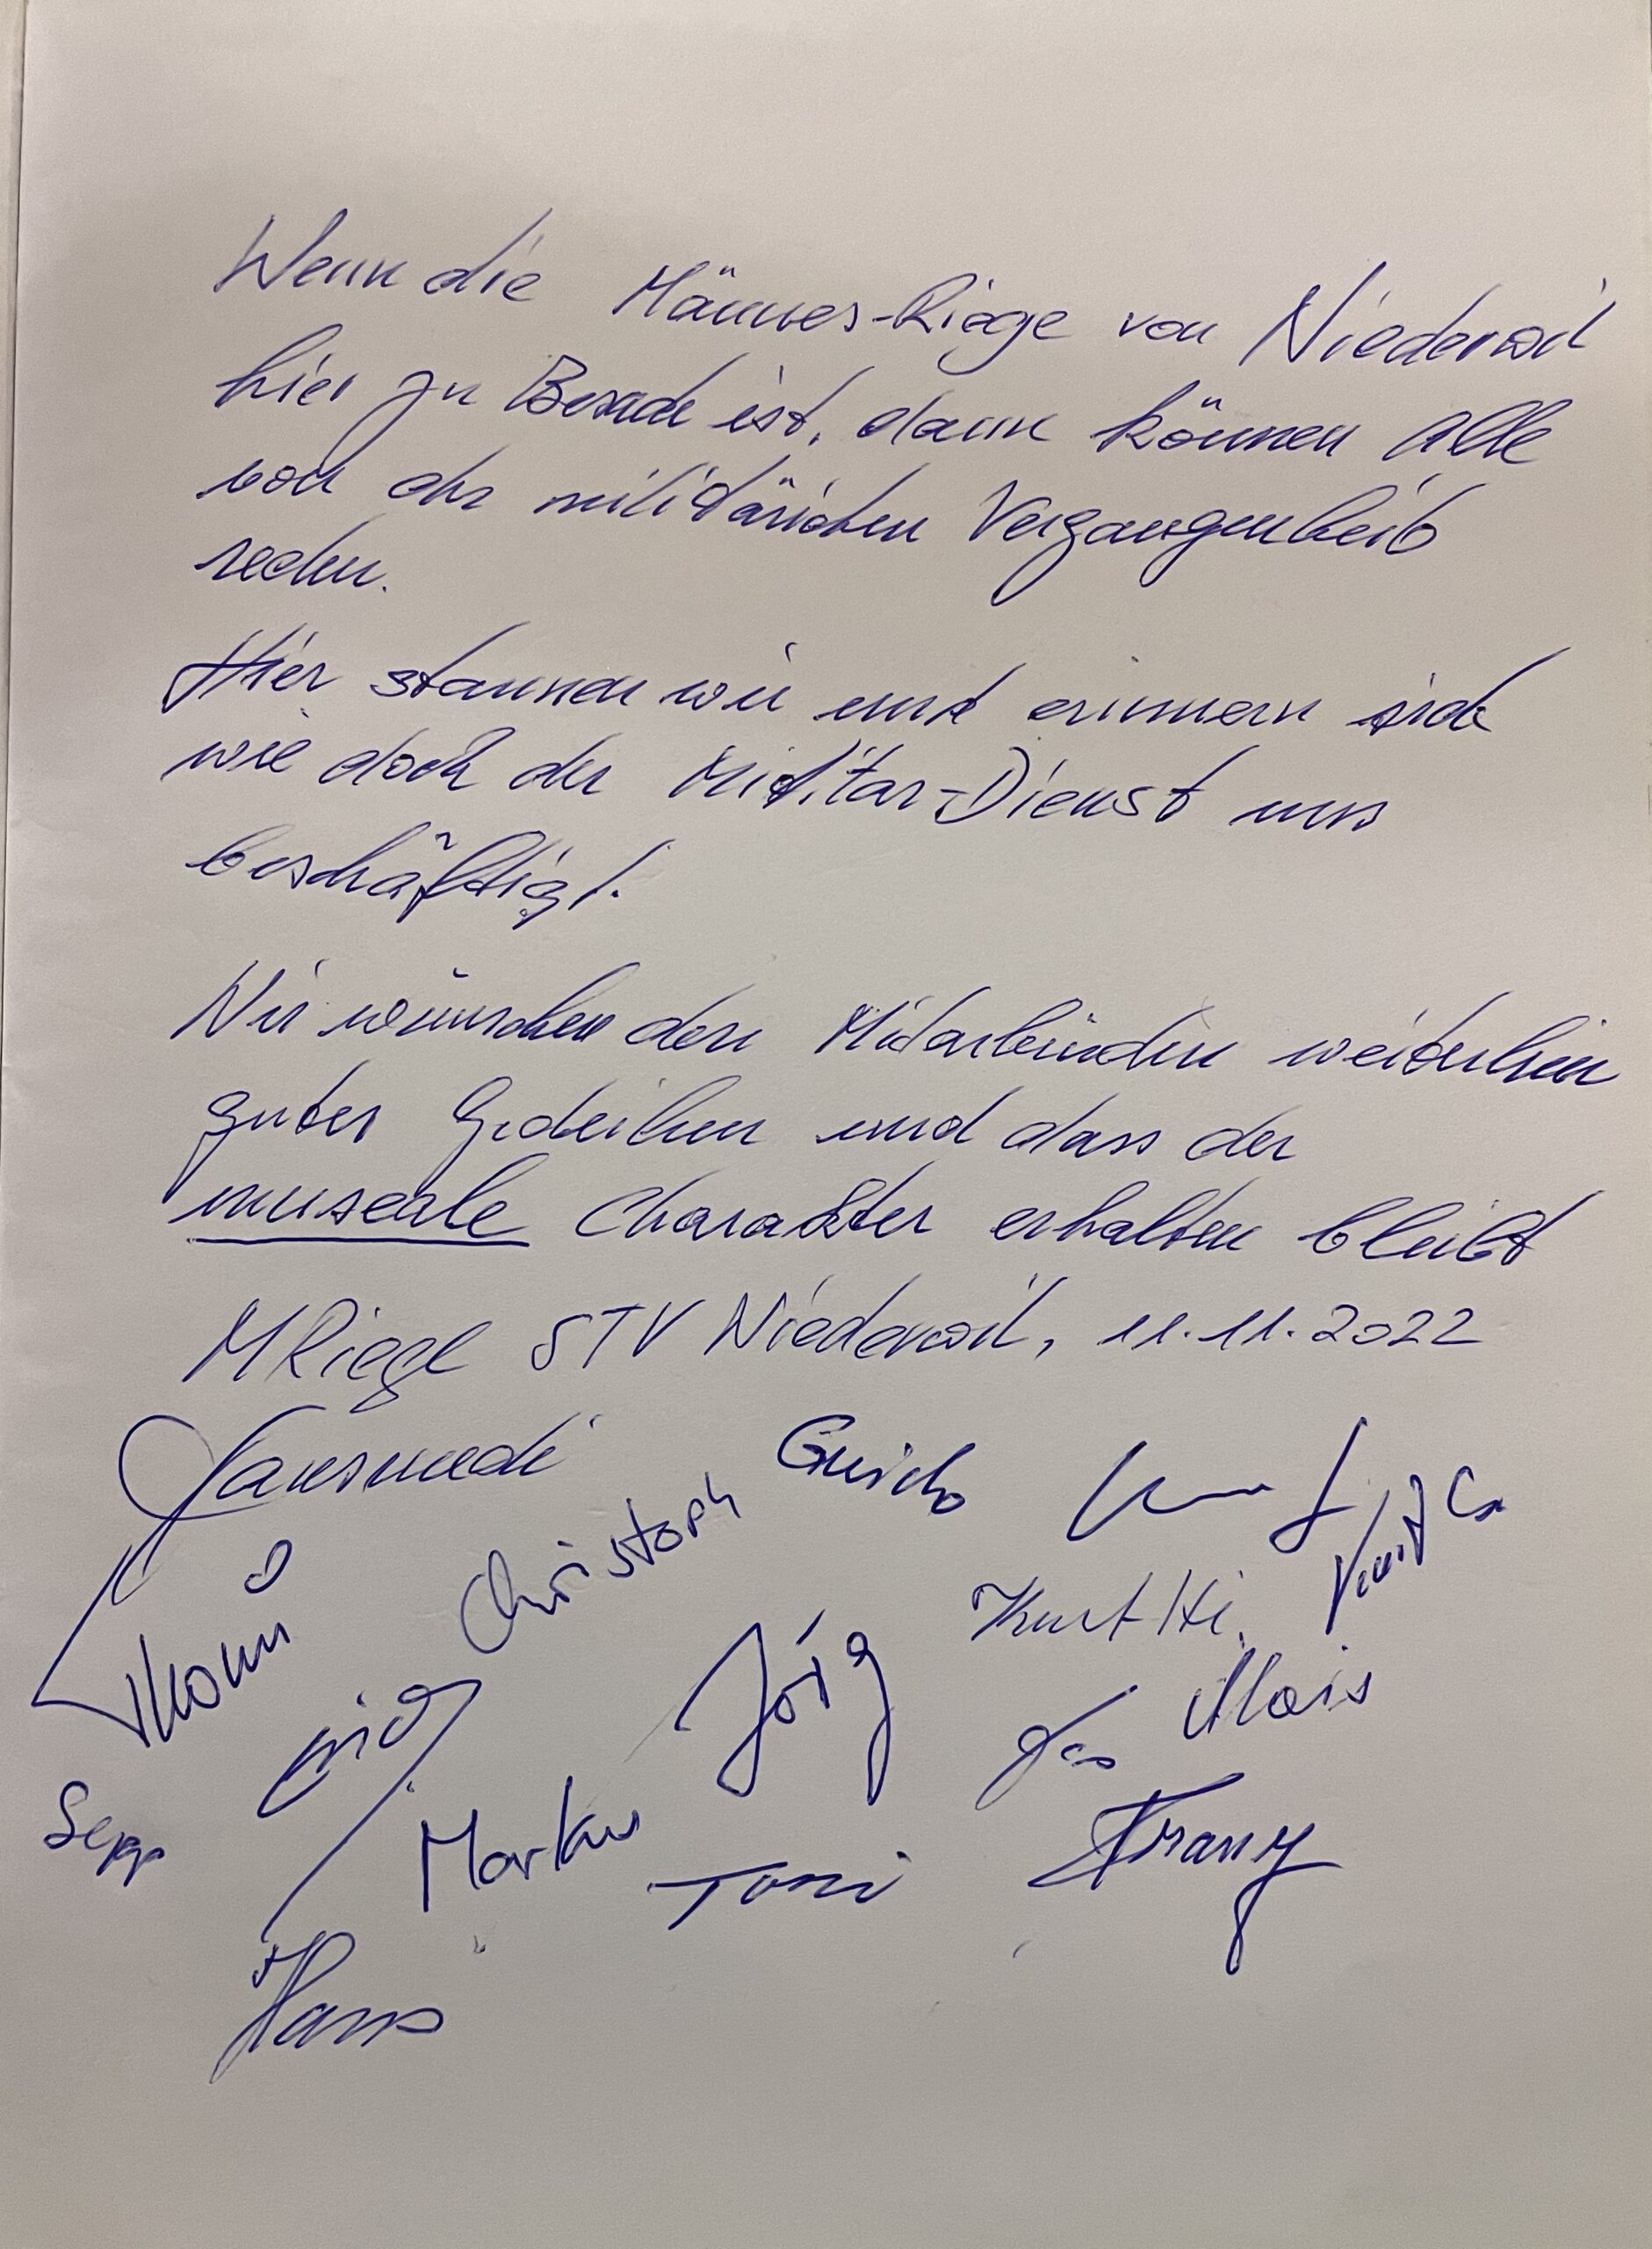 Wenn die Männer-Riege von Niederwil
hier zu Besuch ist, dann können alle
von der militärischen Vergangenheit
reden.
Hier staunen wir und erinnern sich
wie doch der Militär-Dienst uns
beschäftigt.
Wir wünschen den Mitarbeitenden weiterhin
gutes Gedeihen und dass der
museale Charakter erhalten bleibt
MRiege STV Niederwil, 11.11.2022
Hansruedi Guido
Christoph
Thomi Jörg Kurt Hi.
Alois
Sepp Markus Toni Franz
Hans